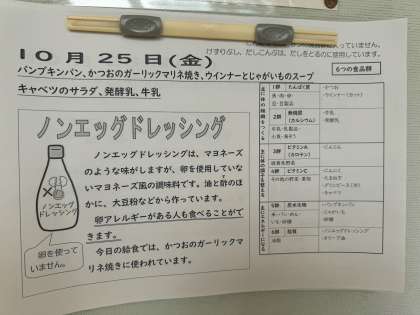 入っていません。
けずりぶし、だしこんぶは、だしをとるのに使用しています。
10月25日(金)
パンプキンパン、かつおのガーリックマリネ焼き、ウインナーとじゃがいものスープ
キャベツのサラダ、発酵乳、牛乳
6つの食品群
ノンエッグドレッシング
ノンエッグドレッシングは、マヨネーズ
のような味がしますが、卵を使用していな
いマヨネーズ風の調味料です。油と酢のほ
かに、大豆粉などから作っています。
卵アレルギーがある人も食べることがで
きます。
今日の給食では、かつおのガーリックマ
リネ焼きに使われています。
ノンエッグ
ドレッシング
卵を使って
いません。
1群 たんぱく質
・かつお
・ウインナー(カット)
豆・豆製品
2群 無機質
(カルシウム)
・牛乳
・発酵乳
牛乳・乳製品・
小魚・海そう
3群 ビタミンA
(カロテン)
・にんじん
緑黄色野菜
4群 ビタミンC
・にんにく
・たまねぎ
・キャベツ
その他の野菜・果物
5群 炭水化物
・パンプキンパン
・じゃがいも
・砂糖
6群 脂質
・ノンエッグドレッシング
・オリーブ油
油脂